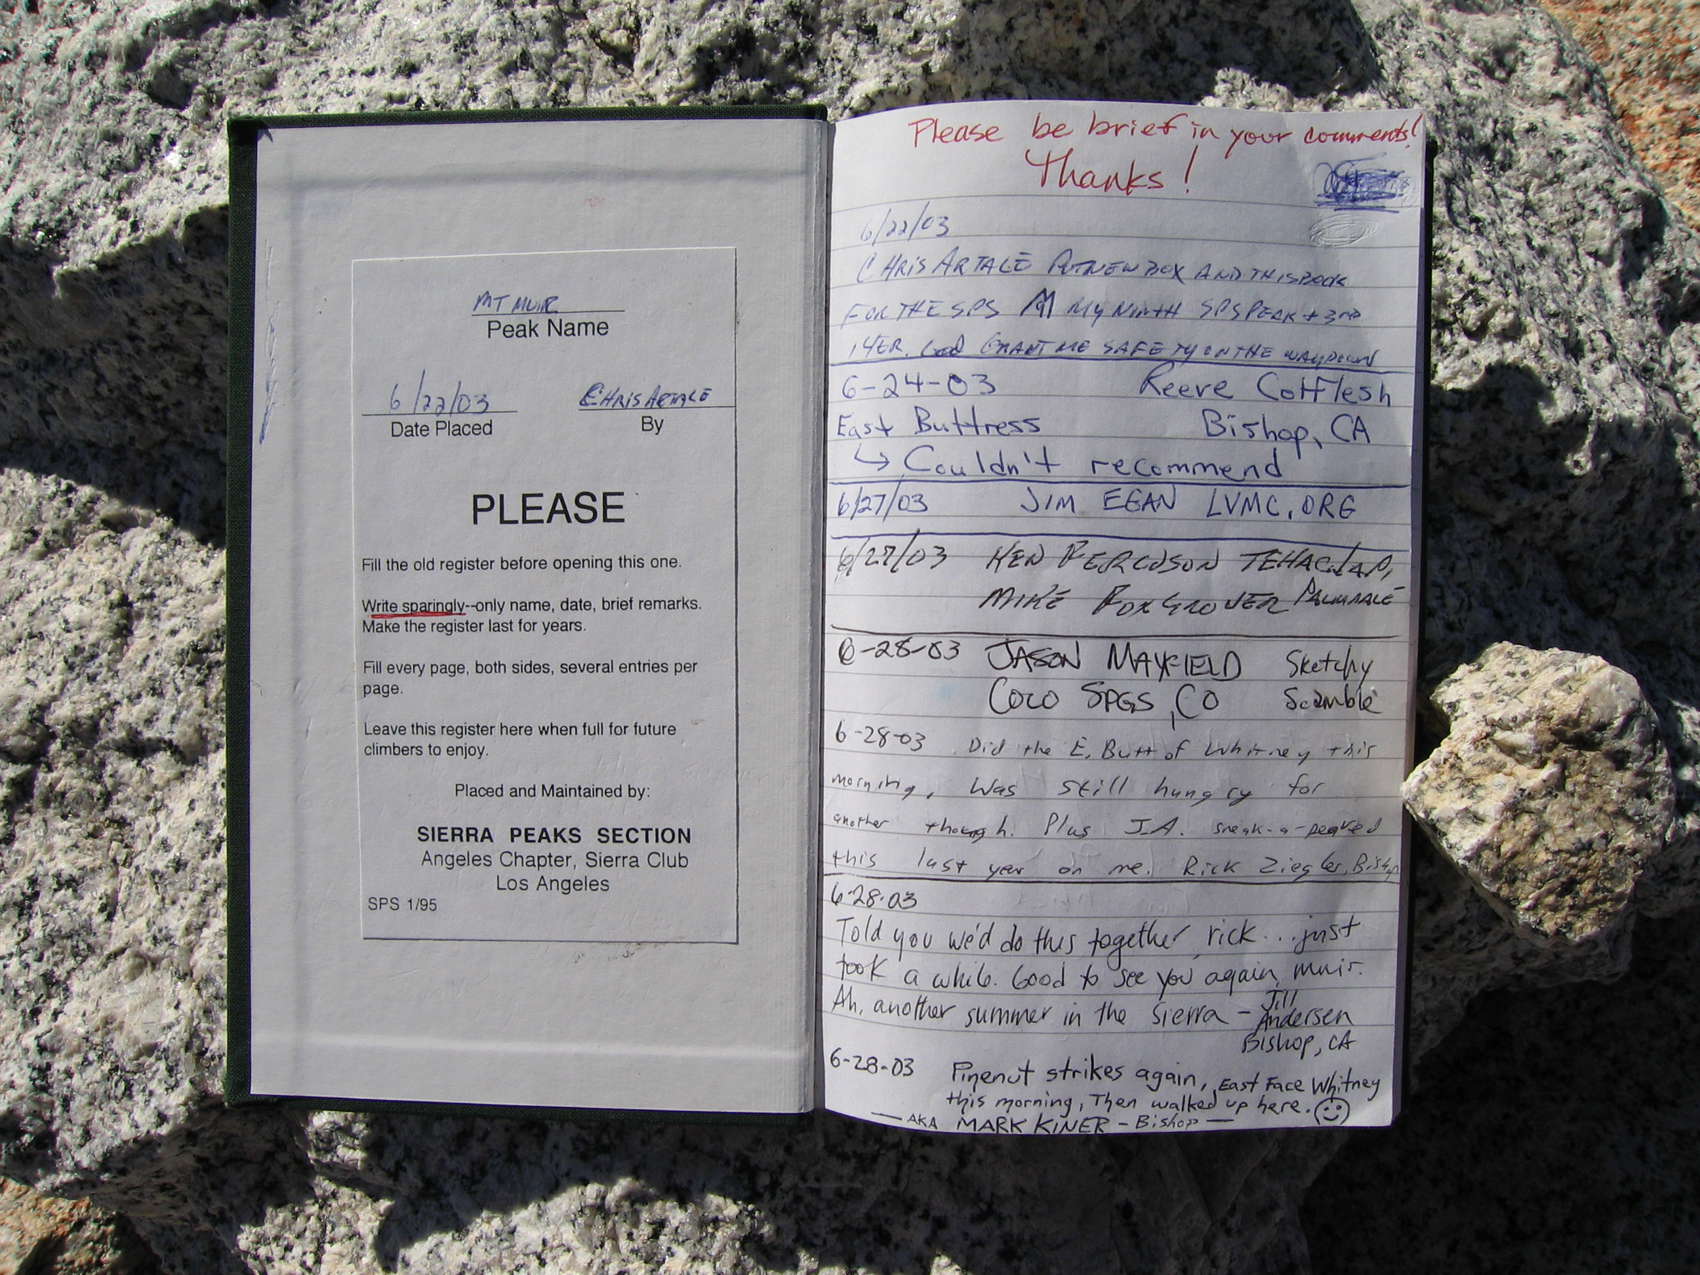 MT MUIR
Peak Name
6/22/03 CHRIS ARTALE
Date Placed By
PLEASE
Fill the old register before opening this one.
Write sparingly--only name, date, brief remarks.
Make the register last for years.
Fill every page, both sides, several entries per
page.
Leave this register here when full for future
climbers to enjoy.
Placed and Maintained by:
SIERRA PEAKS SECTION
Angeles Chapter, Sierra Club
Los Angeles
SPS 1/95
Please be brief in your comments!
Thanks!
6/22/03
CHRIS ARTALE PUT NEW BOX AND THIS BOOK
FOR THE SPS MY NINTH SPS PEAK + 3RD
14ER. God GRANT ME SAFETY ON THE WAY DOWN
6-24-03 Reeve Cofflesh
East Buttress Bishop, CA
↳ Couldn't recommend
6/27/03 JIM EGAN LVMC.ORG
6/27/03 KEN FERGUSON TEHACHAPI,
MIKE FOXGROVER PALMDALE
6-28-03 JASON MAYFIELD Sketchy
COLO SPGS, CO Scamble
6-28-03 Did the E. Butt of Whitney this
morning, Was still hungry for
another though. Plus J.A. sneak-a-peaked
this last year on me. Rick Ziegler, Bishop
6-28-03
Told you we'd do this together, rick...just
took a while. Good to see you again, muir.
Ah, another summer in the Sierra - Jill
Andersen
Bishop, CA
6-28-03 Pinenut strikes again, East Face Whitney
this morning, Then walked up here.
— AKA MARK KINER - Bishop —